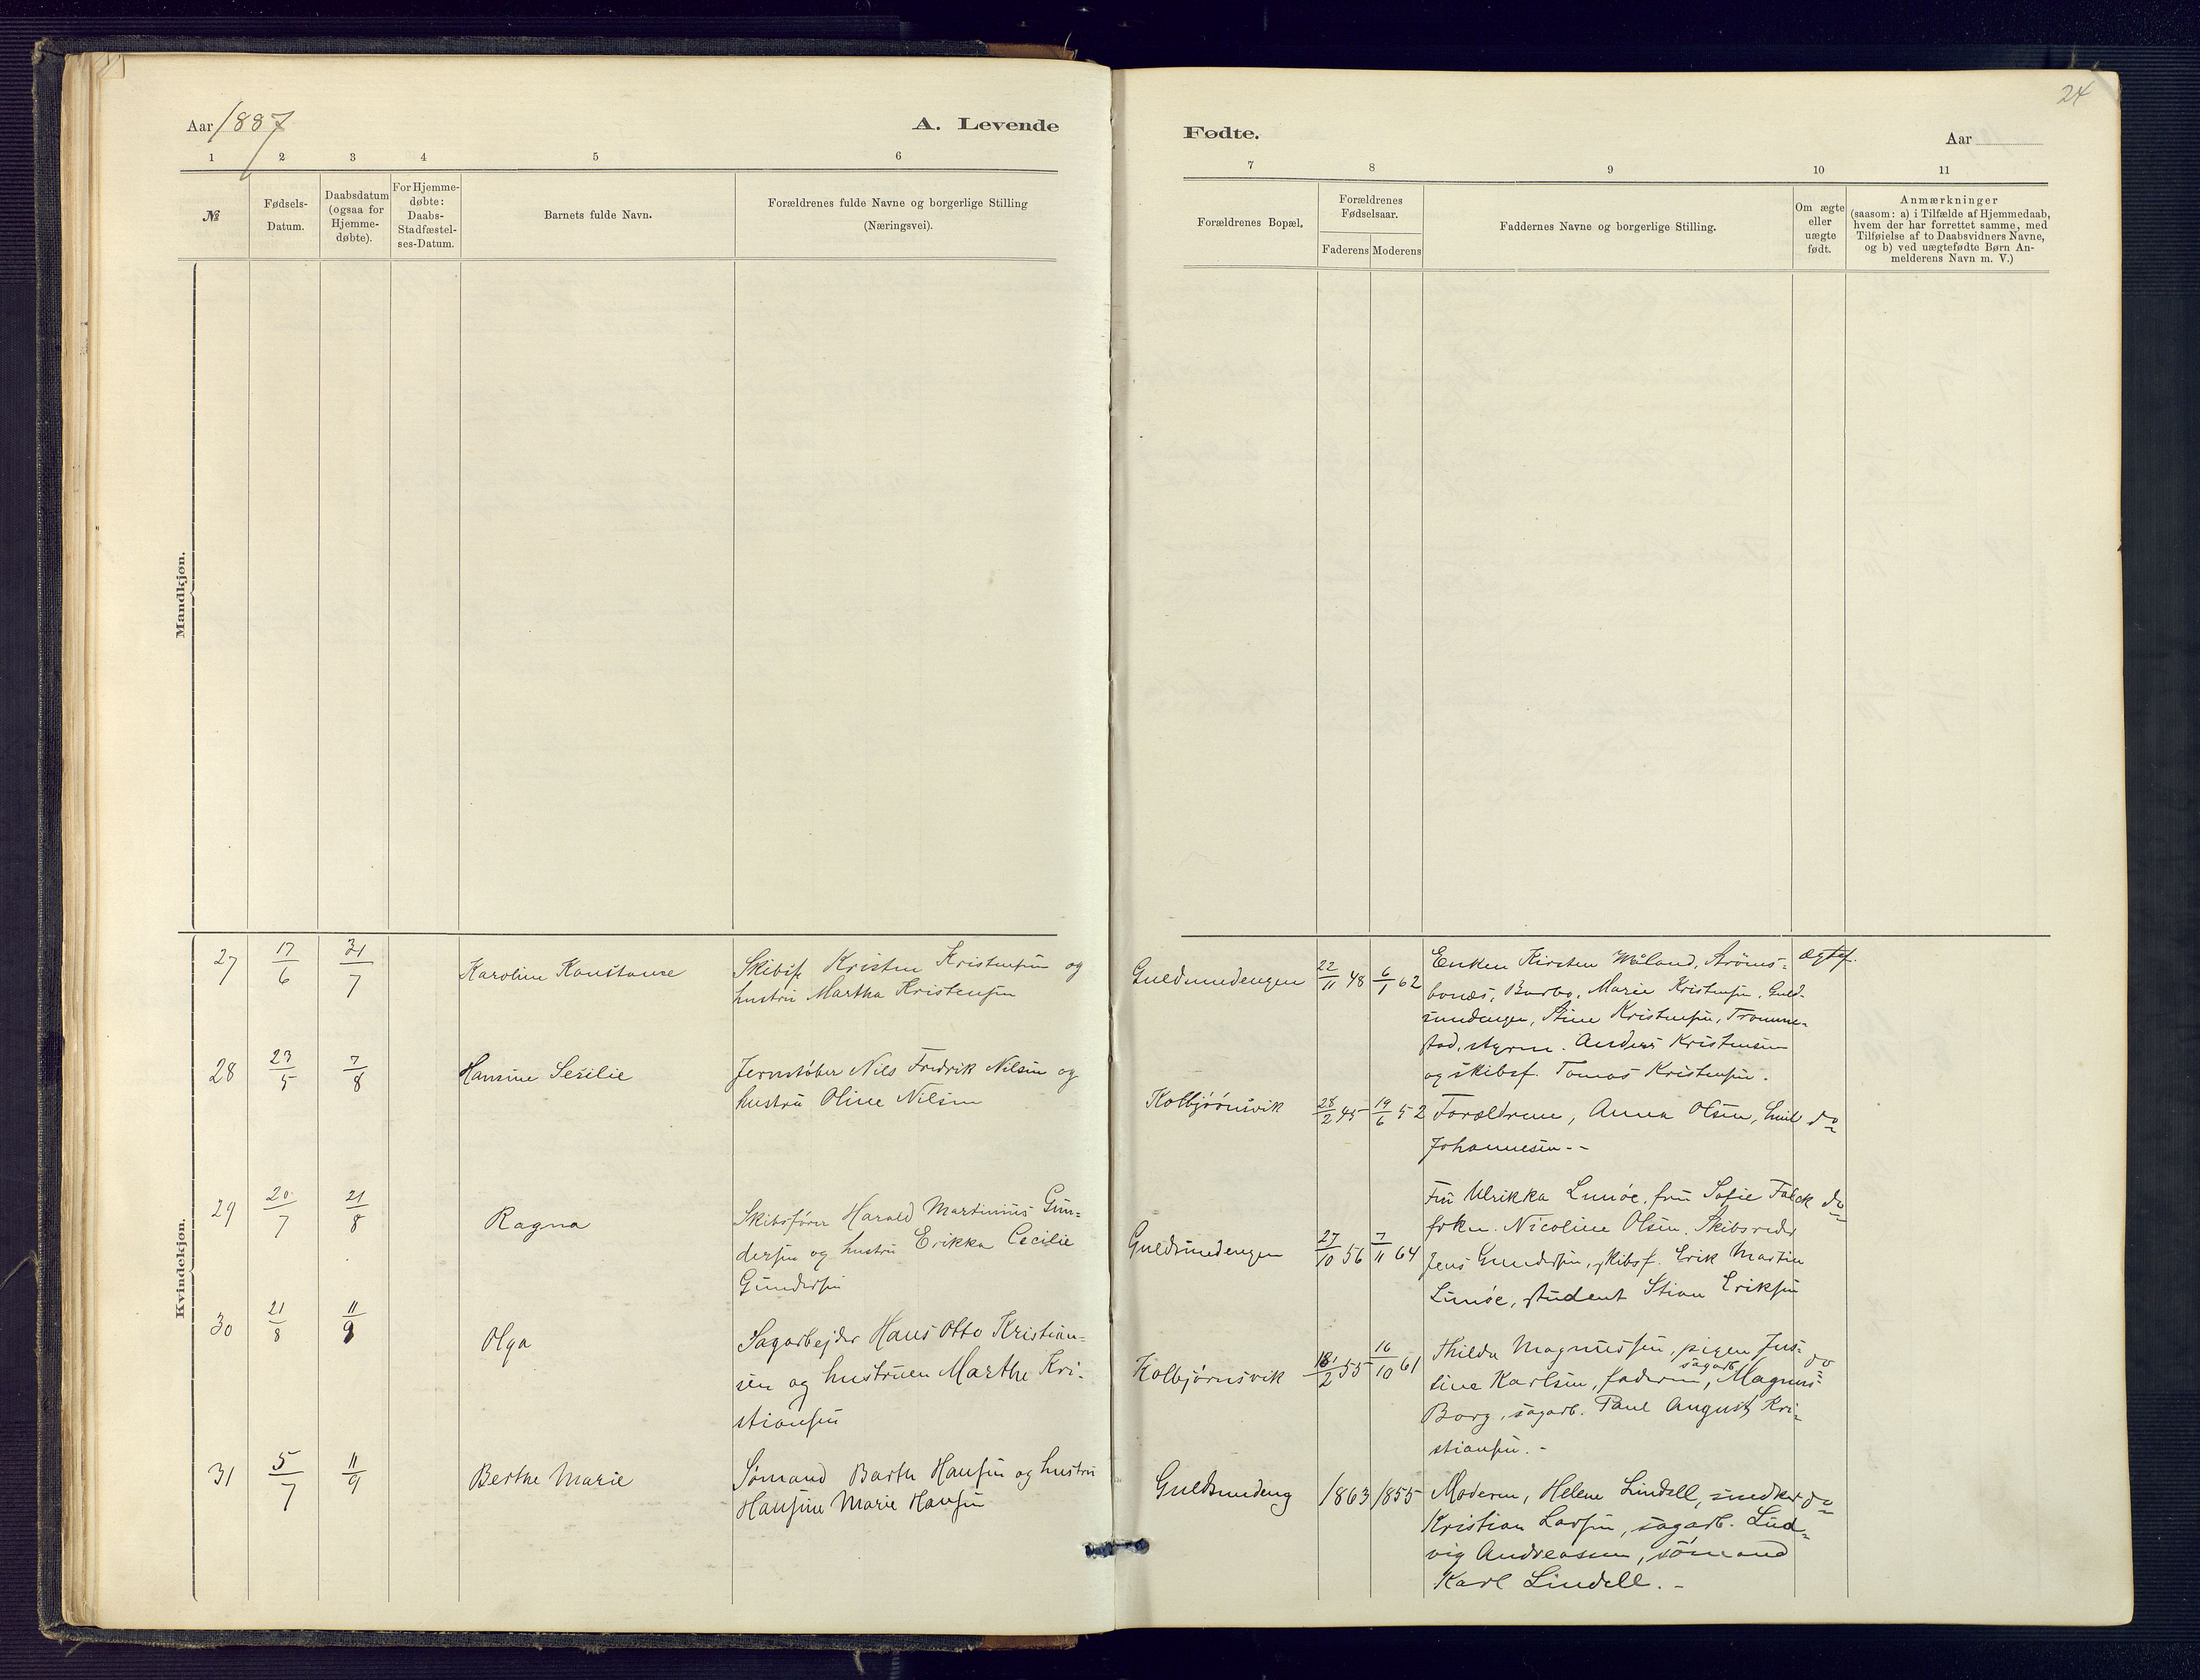 24
Aar 1887
A. Levende
Fødte.
Aar
1 2 3 4 5 6
7 8 9 10 11
№
Fødsels-
Datum.
Daabsdatum
(ogsaa for
Hjemme-
døbte).
For Hjemme-
døbte:
Daabs-
Stadfæstel-
ses-Datum.
Barnets fulde Navn.
Forældrenes fulde Navne og borgerlige Stilling
(Næringsvei).
Forældrenes Bopæl.
Forældrenes
Fødselsaar.
Faderens Moderens
Faddernes Navne og borgerlige Stilling.
Om ægte
eller
uægte
født.
Anmærkninger
(saasom: a) i Tilfælde af Hjemmedaab,
hvem der har forrettet samme, med
Tilføielse af to Daabsvidners Navne,
og b) ved uægtefødte Børn An-
melderens Navn m. V.)
Mandkjøn.
Kvindekjøn.
27 17/6 31/7 Karoline Konstanse
Skibsf. Kristen Kristensen og
hustru Martha Kristensen
Guldsmedengen 22/11 48 6/1 62
Enken Kirsten Måland, Strøms-
bonæs, Barbo, Marie Kristensen, Guld-
smedengen, Stine Kristensen, Tromme-
stad, styrm. Anders Kristensen
og skibsf. Tomas Kristensen.
Ægtef.
28 23/5 7/8 Hansine Sesilie
Jernstøber Nils Fredrik Nilsen og
hustru Oline Nilsen
Kolbjørnsvik 28/2 45 19/6 52
Forældrene, Anna Olsen, Emil
Johannesen. -
do
29 20/7 21/8 Ragna
Skibsfører Harald Martinius Gun-
dersen og hustru Erikka Cecilie
Gundersen
Guldsmedengen 27/10 56 7/11 64
Fru Ulrikka Linnöe, fru Sofie Falck
frkn. Nicoline Olsen, Skibsreder
Jens Gundersen, skibsf. Erik Martin
Linnöe, student Stian Eriksen
do
30 21/8 11/9 Olga
Sagarbejder Hans Otto Kristian-
sen og hustruen Marthe Kri-
stiansen
Kolbjørnsvik 18/2 55 16/10 61
Thilda Magnussen, pigen Jus-
sagarb.
sine Karlsen, faderen, Magnus
Borg, sagarb. Paul August Kri-
stiansen. -
do
31 5/7 11/9 Berthe Marie
Sömand Barth Hansen og hustru
Hansine Marie Hansen
Guldsmedeng 1863 1855
Moderen, Helene Lindell, snedker
Kristian Larsen, sagarb. Lud-
vig Andreasen, sömand
Karl Lindell. -
do